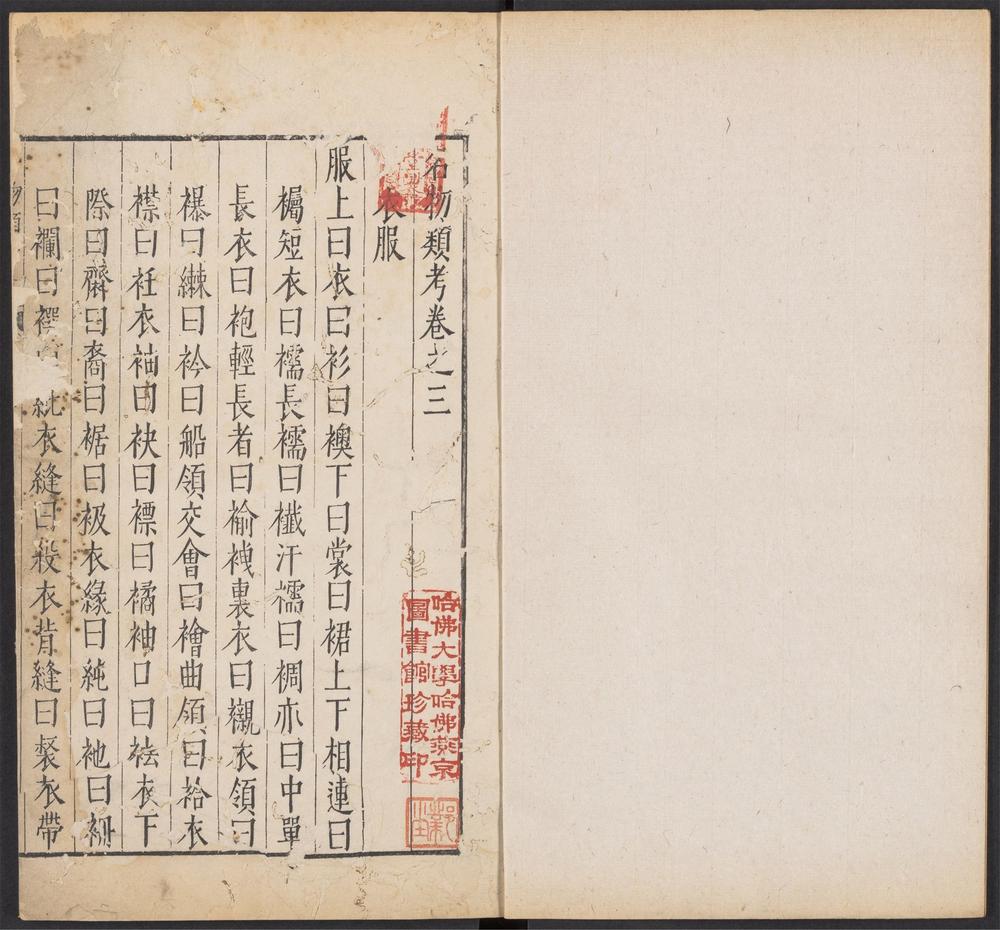 名物類考卷之三
衣服
服上曰衣曰衫曰襖下曰裳曰裙上下相連曰
襡短衣曰襦長襦曰襳汗襦曰裯亦曰中單
長衣曰袍輕長者曰褕袣裏衣曰襯衣領曰
襮曰𫄴曰衿曰船領交會曰襘曲領曰袷衣
襟曰衽衣袖曰袂曰褾曰襦袖口曰袪衣下
際曰齋曰裔曰裾曰衱衣緣曰純曰衪曰袡
曰襴曰襈 紞衣縫曰緞衣背縫曰裻衣帶
哈佛大學哈佛燕京
圖書館珍藏印